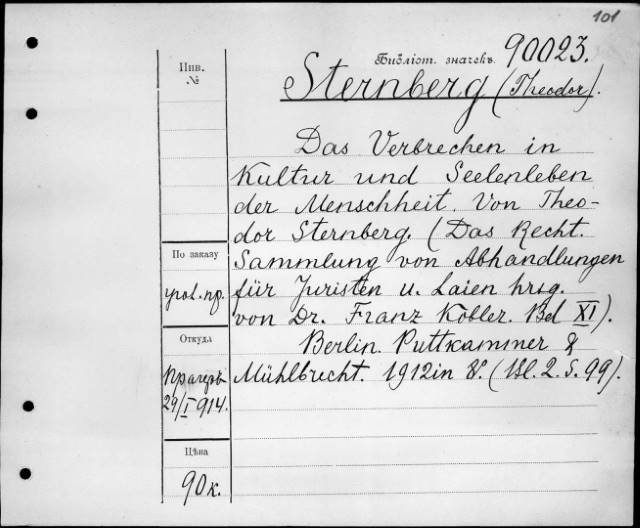 101
Библіот. значекъ 90023.
Инв.
№
Sternberg (Theodor).
Das Verbrechen in
Kultur und Seelenleben
der Menschheit. Von Theo-
dor Sternberg. (Das Recht.
По заказу
Sammlung von Abhandlungen
угол. пр.
für Juristen u. Laien hrsg.
von Dr. Franz Kobler. Bd XI).
Откуда
Berlin. Puttkammer &
Прагеръ
Mühlbrecht. 1912 in 8°. (1Bl. 2. S. 99).
29/I 914.
Цѣна
90 к.